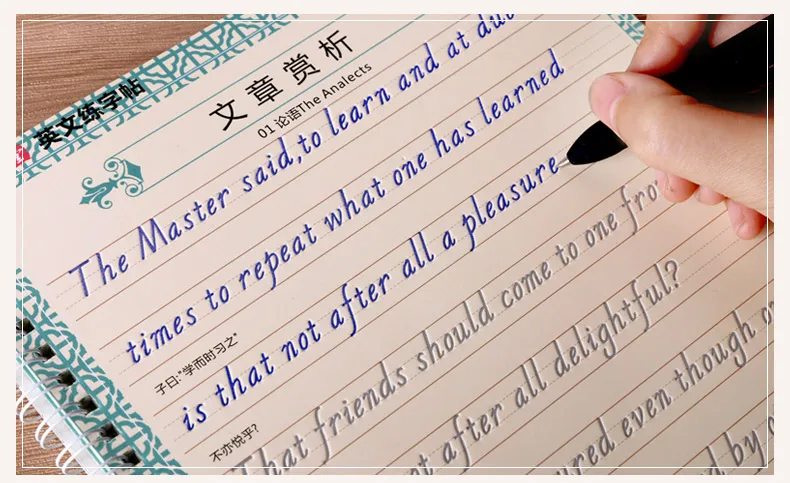 英文练字帖
文章赏析
01 论语The Analects
The Master said,to learn and at due
times to repeat what one has learned
子曰:“学而时习之”
is that not after all a pleasure
不亦悦乎?
That friends should come to one from
not after all delightful?
even though
by